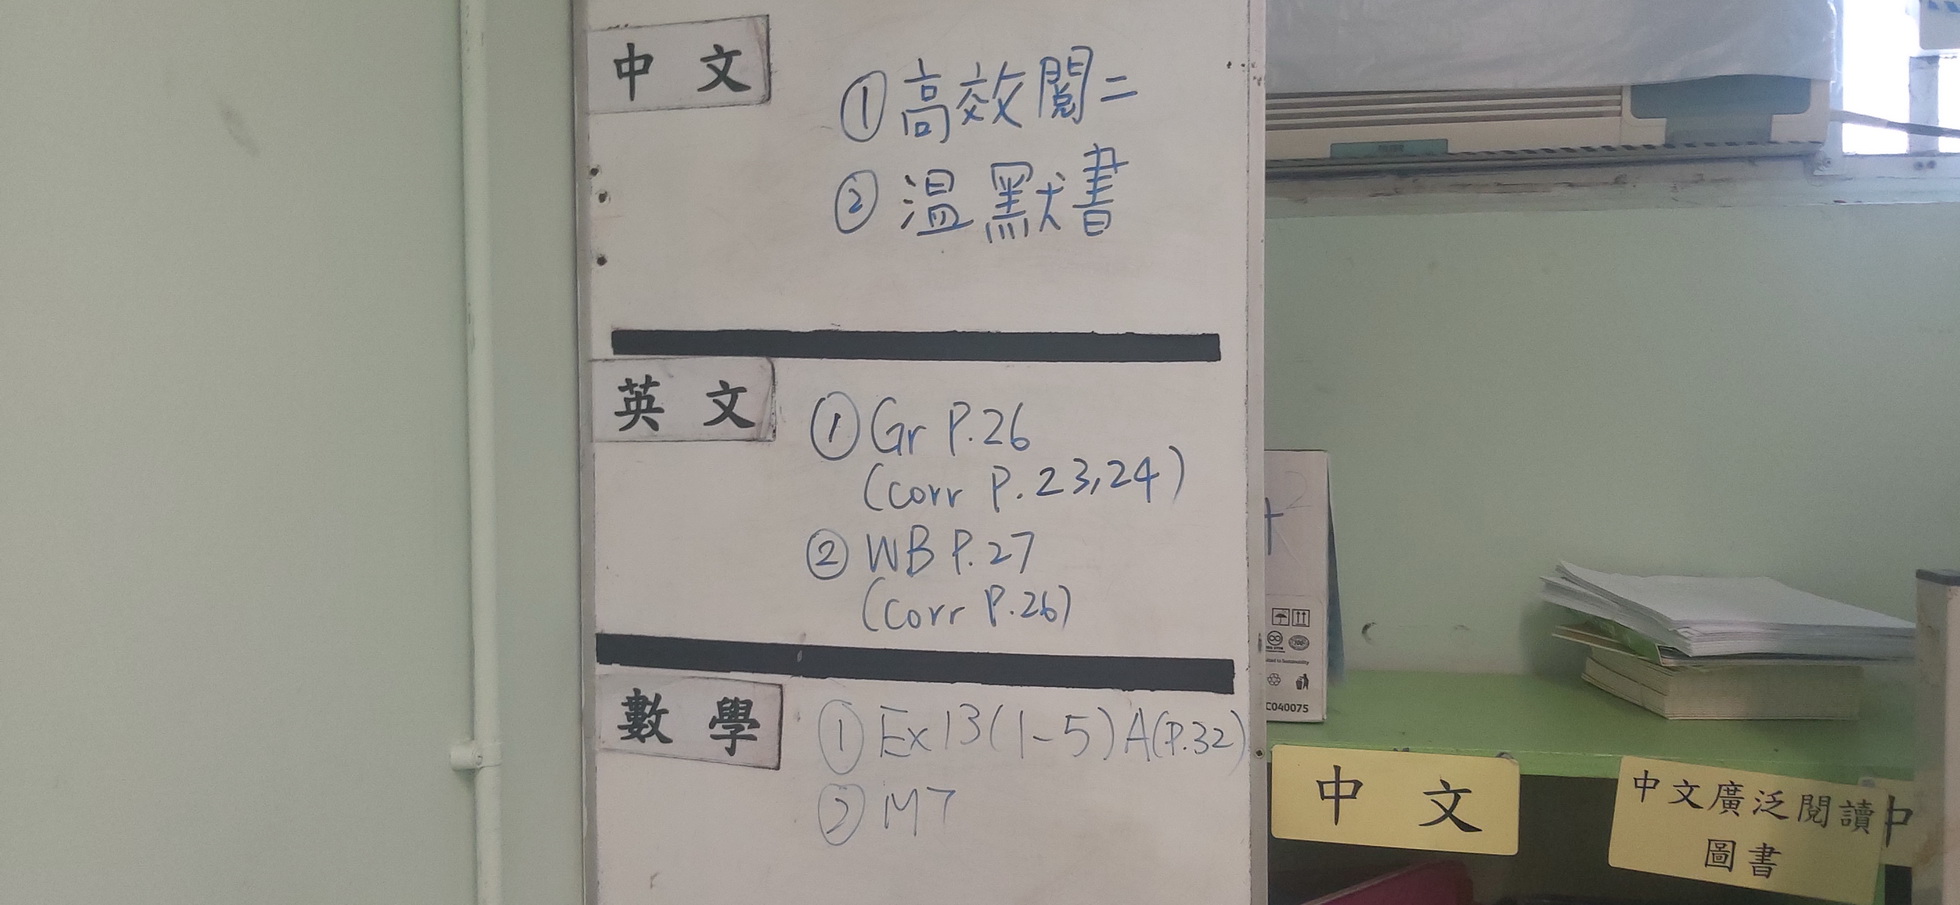 中 文
①高效閱二
②溫 默書
英 文
①Gr P.26
(corr P. 23,24)
②WB P.27
(corr P.26)
數 學
①Ex13(1-5)A(P.32)
②M7
C040075
中 文
中文廣泛閱讀
圖書
中